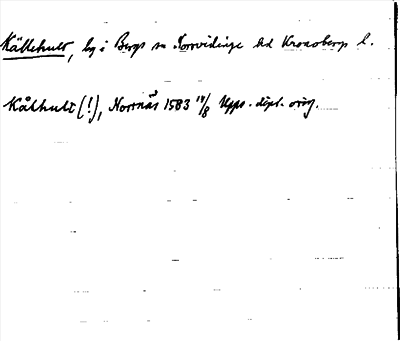 Källehult, by i Bergs sn Norrvidinge hd Kronobergs l.
Kålhult (!), Norrnäs 1583 14/8 Upps. dipl. orig.